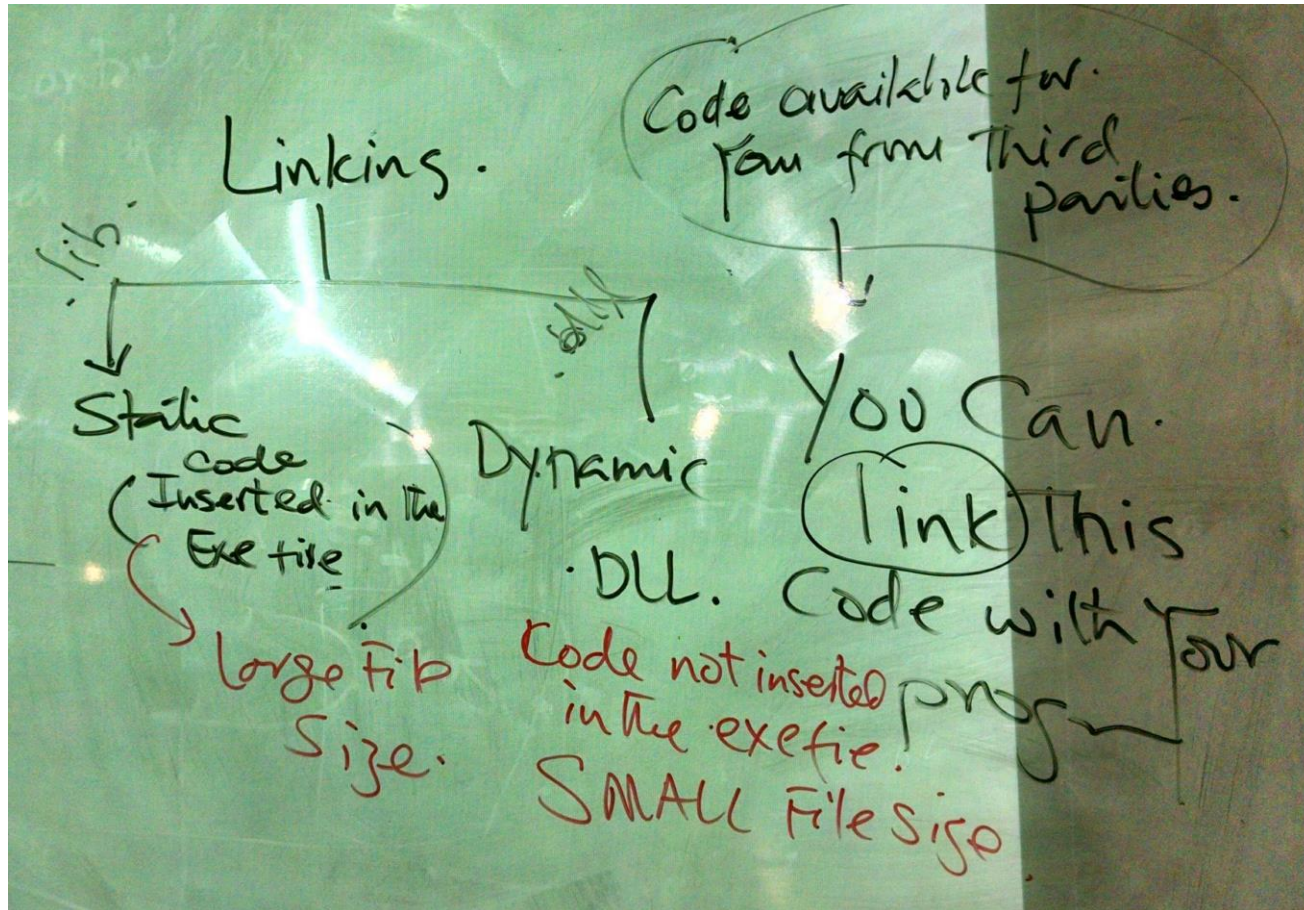 Linking.
.lib.
.dll
Static
Code
Inserted in the
Exe file
Large File
Size.
Dynamic
.DLL.
Code not inserted
in the exefile.
SMALL File Size
Code available for.
You from Third
parties.
You Can.
link This
Code with Your